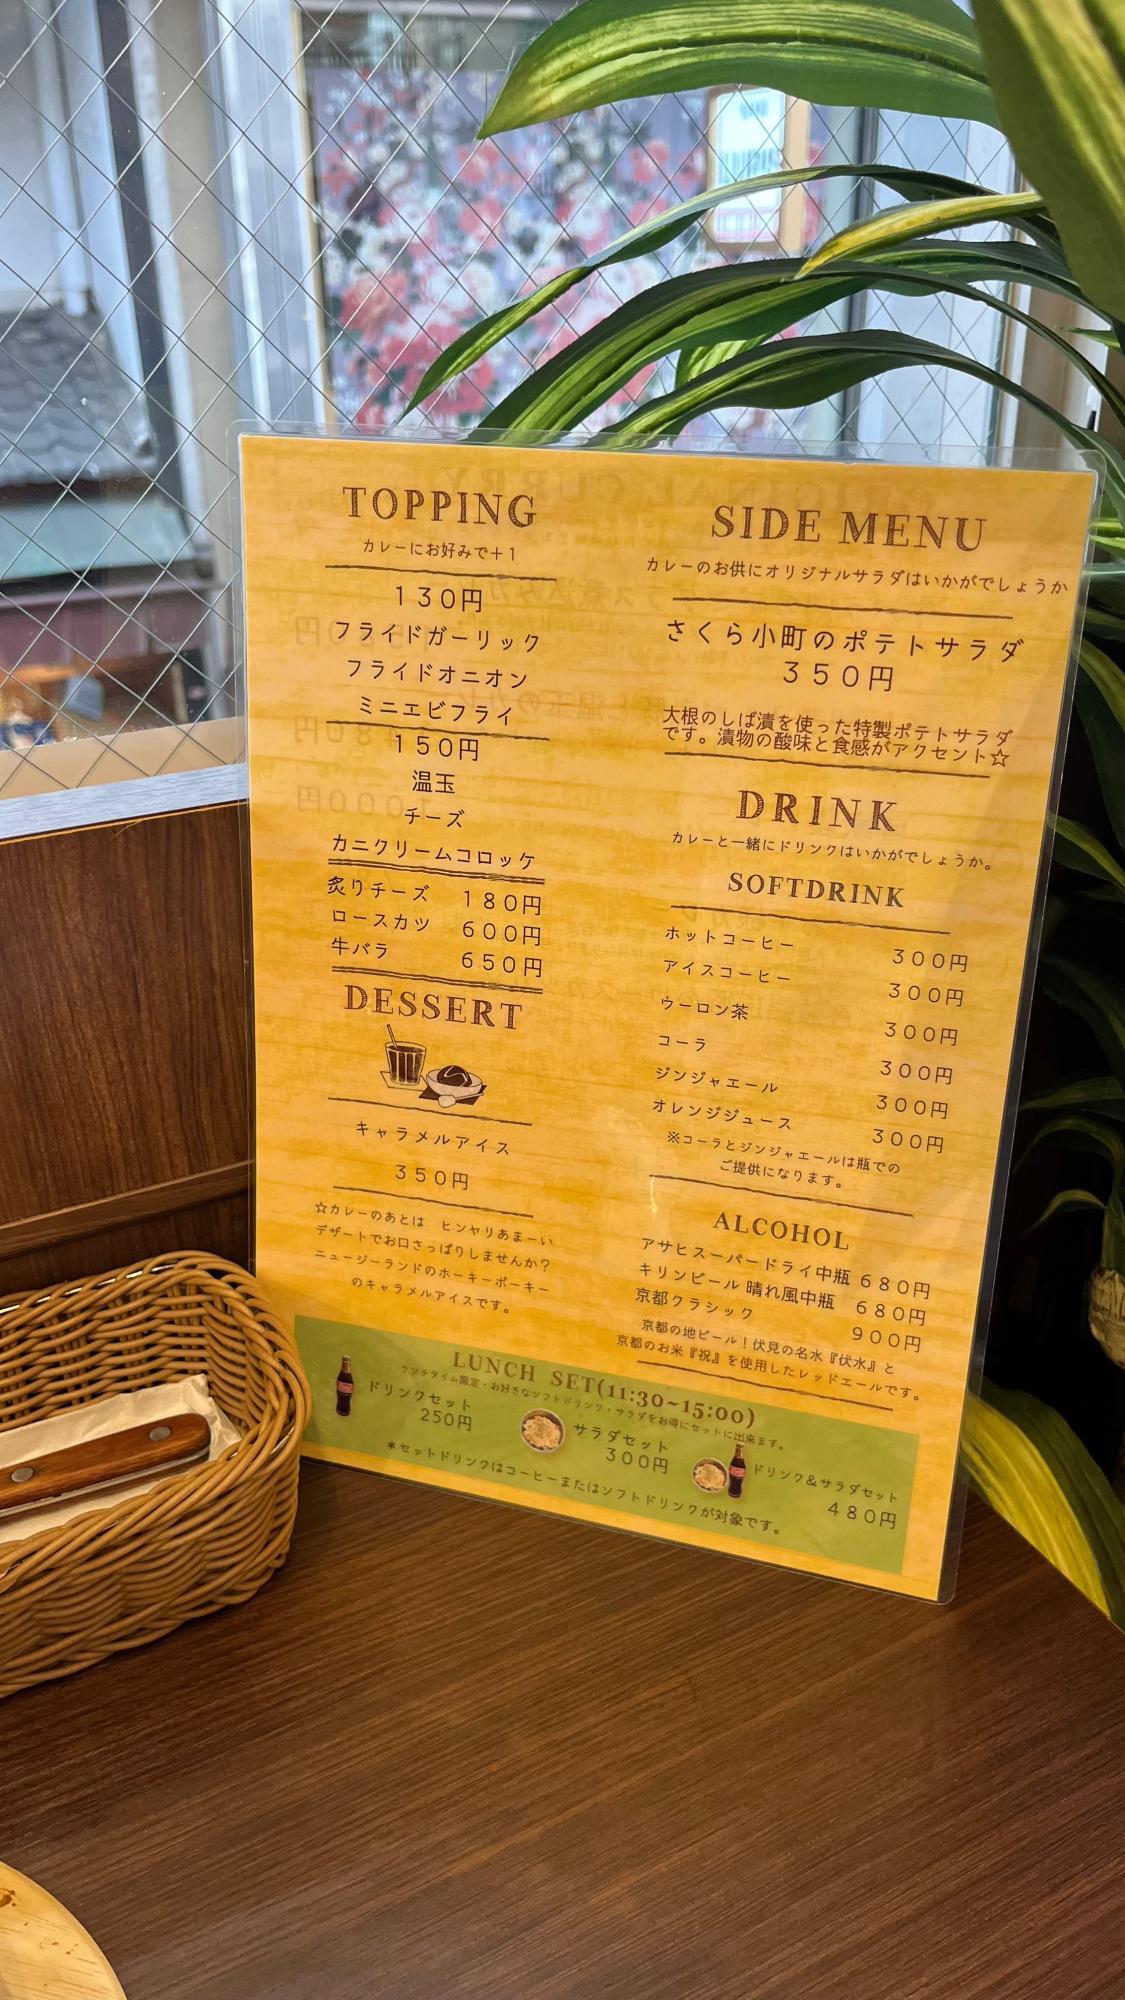 TOPPING
カレーにお好みで＋１
１３０円
フライドガーリック
フライドオニオン
ミニエビフライ
１５０円
温玉
チーズ
カニクリームコロッケ
炙りチーズ １８０円
ロースカツ ６００円
牛バラ ６５０円
DESSERT
キャラメルアイス
３５０円
☆カレーのあとは ヒンヤリあまーい
デザートでお口さっぱりしませんか？
ニュージーランドのホーキーポーキー
のキャラメルアイスです。
SIDE MENU
カレーのお供にオリジナルサラダはいかがでしょうか
さくら小町のポテトサラダ
３５０円
大根のしば漬を使った特製ポテトサラダ
です。漬物の酸味と食感がアクセント☆
DRINK
カレーと一緒にドリンクはいかがでしょうか。
SOFTDRINK
ホットコーヒー ３００円
アイスコーヒー ３００円
ウーロン茶 ３００円
コーラ ３００円
ジンジャエール ３００円
オレンジジュース ３００円
※コーラとジンジャエールは瓶での
ご提供になります。
ALCOHOL
アサヒスーパードライ中瓶 ６８０円
キリンビール 晴れ風中瓶 ６８０円
京都クラシック ９００円
京都の地ビール！伏見の名水『伏水』と
京都のお米『祝』を使用したレッドエールです。
LUNCH SET(11:30~15:00)
ランチタイム限定・お好きなソフトドリンク・サラダをお得にセットに出来ます。
ドリンクセット
250円
サラダセット
３００円
ドリンク&サラダセット
４８０円
＊セットドリンクはコーヒーまたはソフトドリンクが対象です。